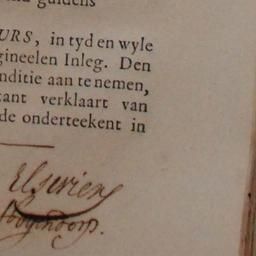 guldens
URS, in tyd en wyle
gineelen Inleg. Den
nditie aan te nemen,
tant verklaart van
de onderteekent in
Elsevier